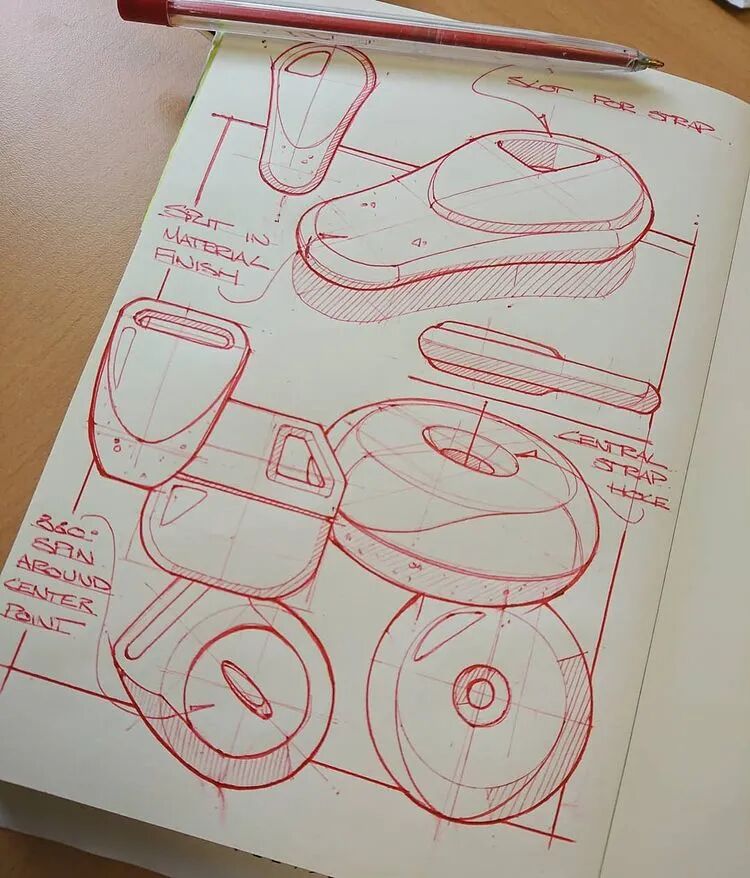 SLOT FOR STRAP
SPLIT IN
MATERIAL
FINISH
CENTRAL
STRAP
HOLE
SPIN
AROUND
CENTER
POINT